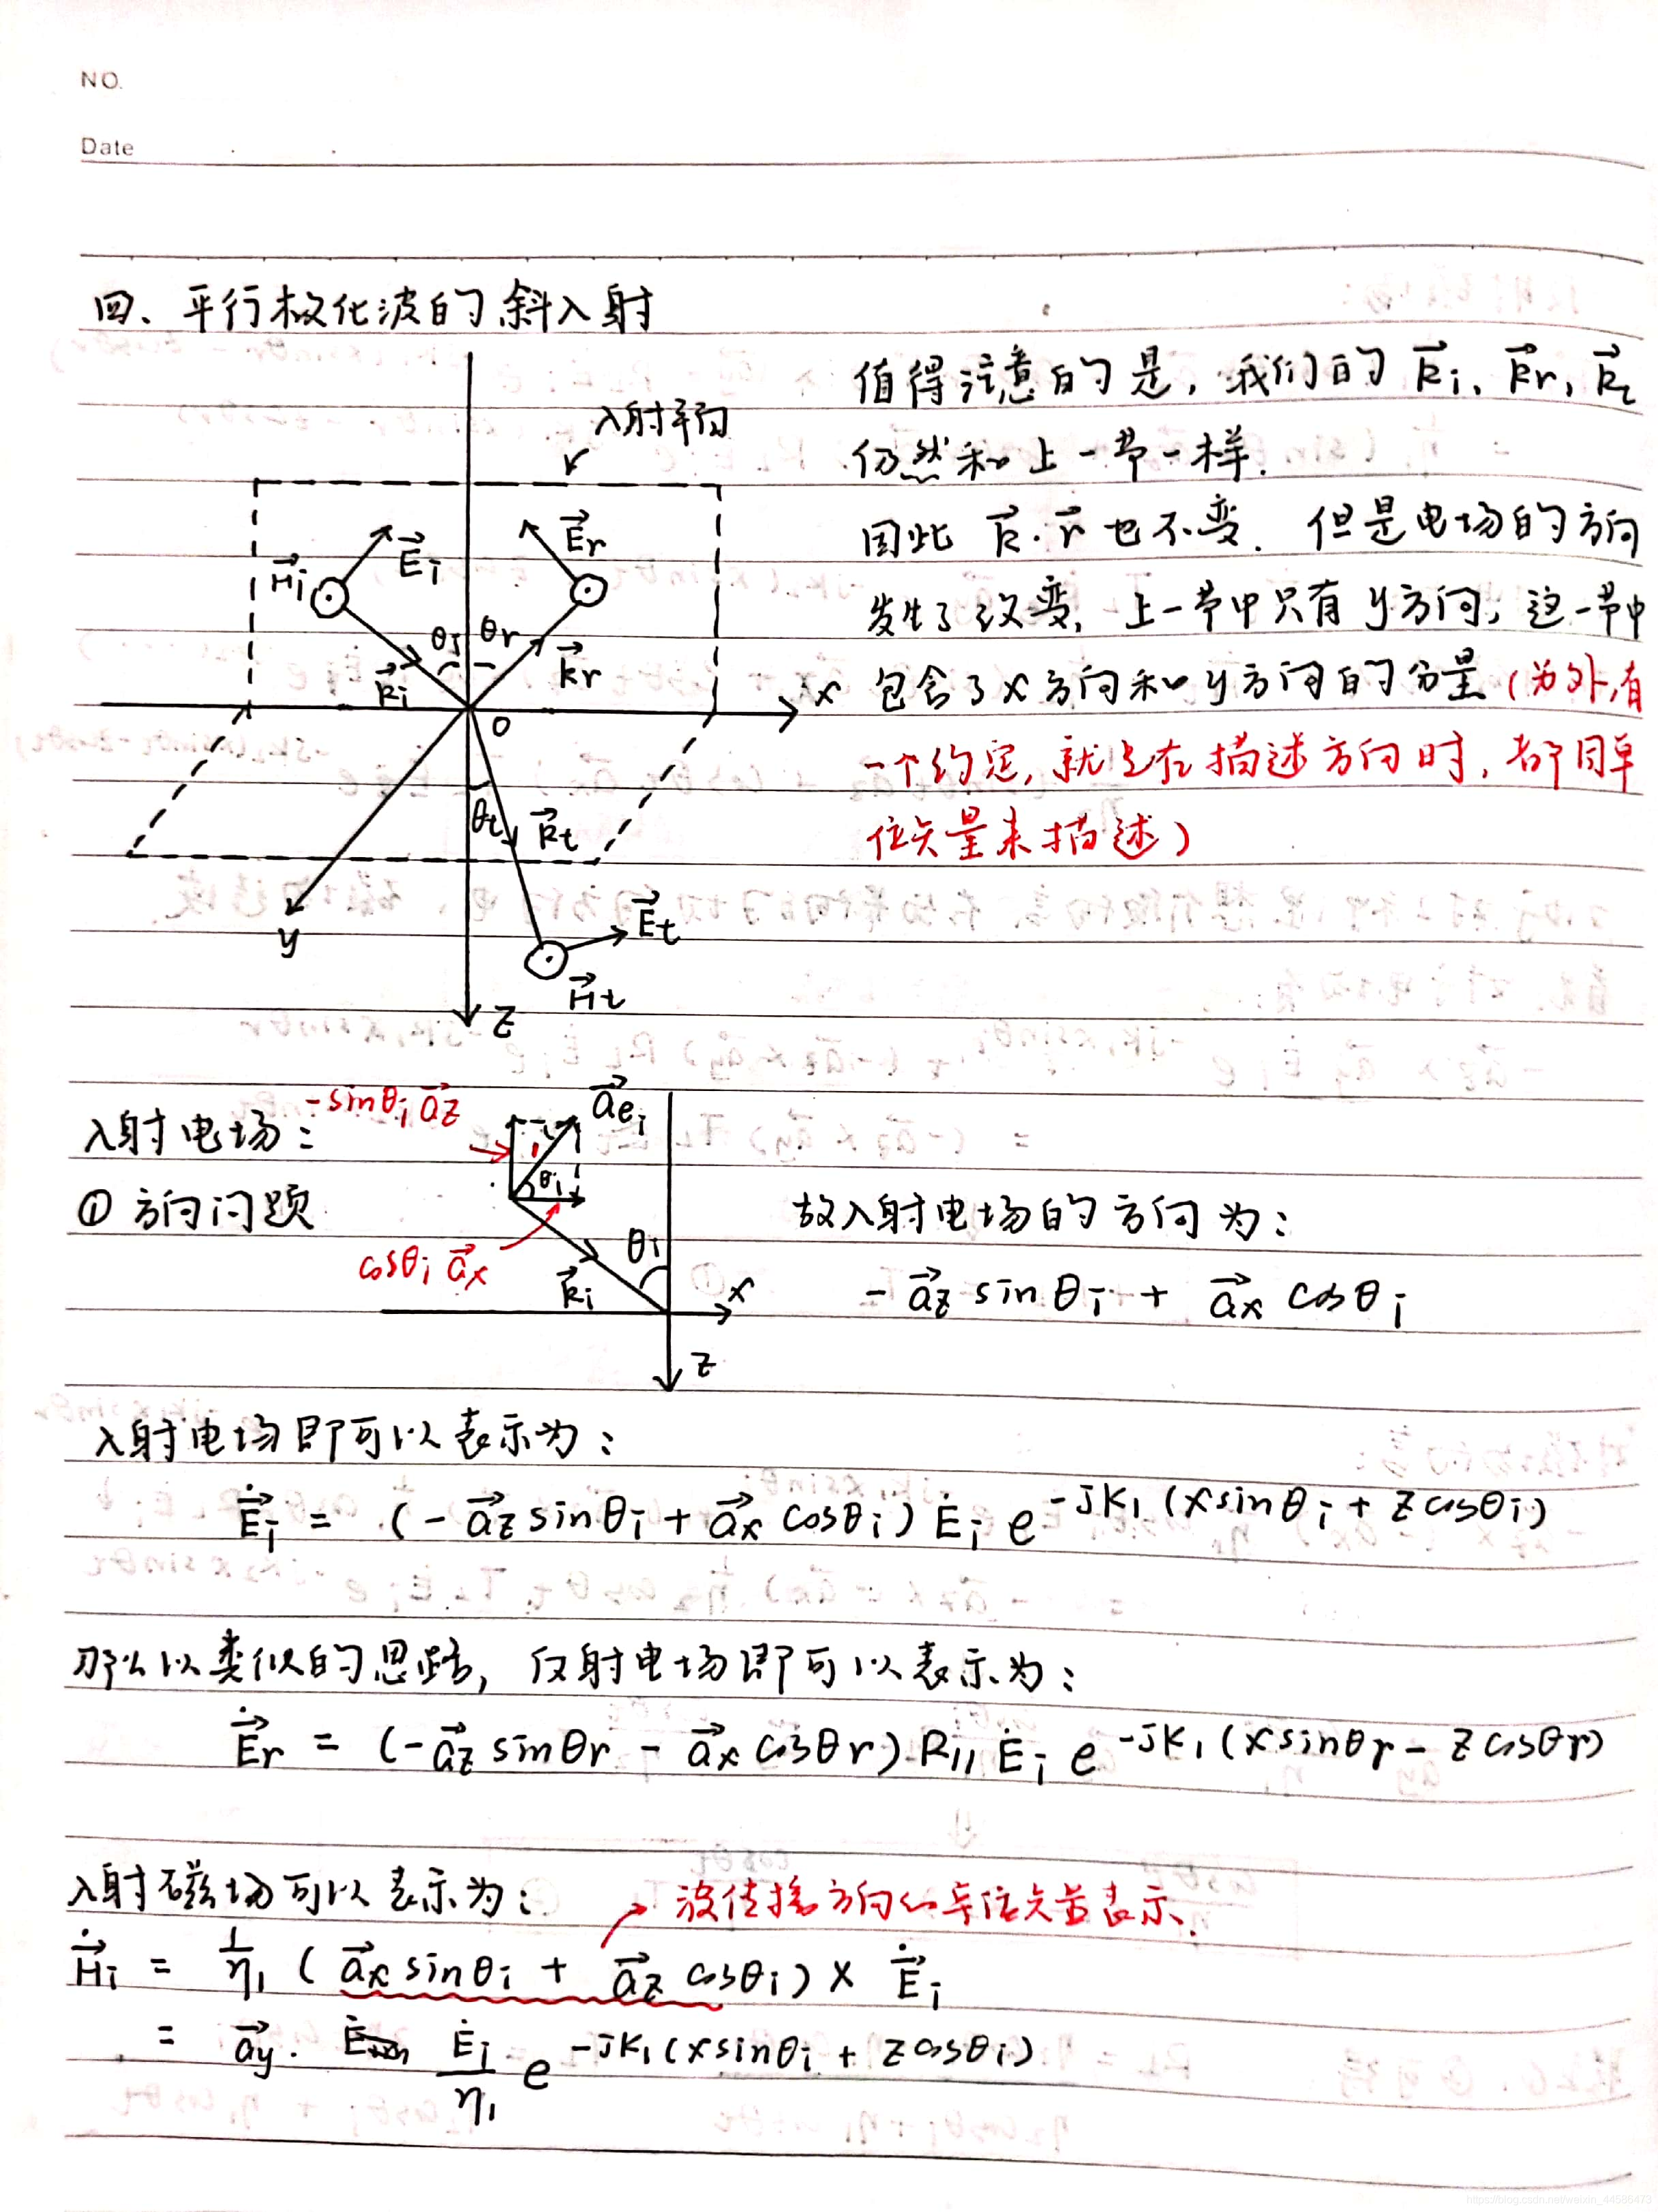 NO.
Date
四、平行极化波的斜入射
值得注意的是，我们的 $\vec{k}_i$、$\vec{k}_r$，$\vec{k}_t$
仍然和上一节一样.
因此 $\vec{k}\cdot\vec{r}$ 也不变. 但是电场的方向
发生了改变, 上一节中只有y方向，这一节中
包含了x方向和y方向的分量（为外,有
一个约定, 就是在描述方向时, 都用单
位矢量来描述）
入射平面
$\vec{E}_i$
$\vec{E}_r$
$\vec{H}_i$
θi
θr
$\vec{k}_i$
$\vec{k}_r$
x
O
θt
$\vec{k}_t$
y
$\vec{E}_t$
$\vec{H}_t$
z
入射电场：
① 方向问题
$-\sin\theta_i\vec{a}_z$
$\vec{a}_{e_i}$
1
θi
$\cos\theta_i\vec{a}_x$
$\vec{k}_i$
θi
x
z
故入射电场的方向为：
$-\vec{a}_z\sin\theta_i+\vec{a}_x\cos\theta_i$
入射电场即可以表示为：
$\dot{\vec{E}}_i=(-\vec{a}_z\sin\theta_i+\vec{a}_x\cos\theta_i)\dot{E}_i e^{-jk_1(x\sin\theta_i+z\cos\theta_i)}$
那么以类似的思路，反射电场即可以表示为：
$\dot{\vec{E}}_r=(-\vec{a}_z\sin\theta_r-\vec{a}_x\cos\theta_r)R_{//}\dot{E}_i e^{-jk_1(x\sin\theta_r-z\cos\theta_r)}$
入射磁场可以表示为：
波传播方向的单位矢量表示.
$\dot{\vec{H}}_i=\frac{1}{\eta_1}(\vec{a}_x\sin\theta_i+\vec{a}_z\cos\theta_i)\times\dot{\vec{E}}_i$
$=\vec{a}_y\cdot\frac{\dot{E}_i}{\eta_1}e^{-jk_1(x\sin\theta_i+z\cos\theta_i)}$
https://blog.csdn.net/weixin_44586473